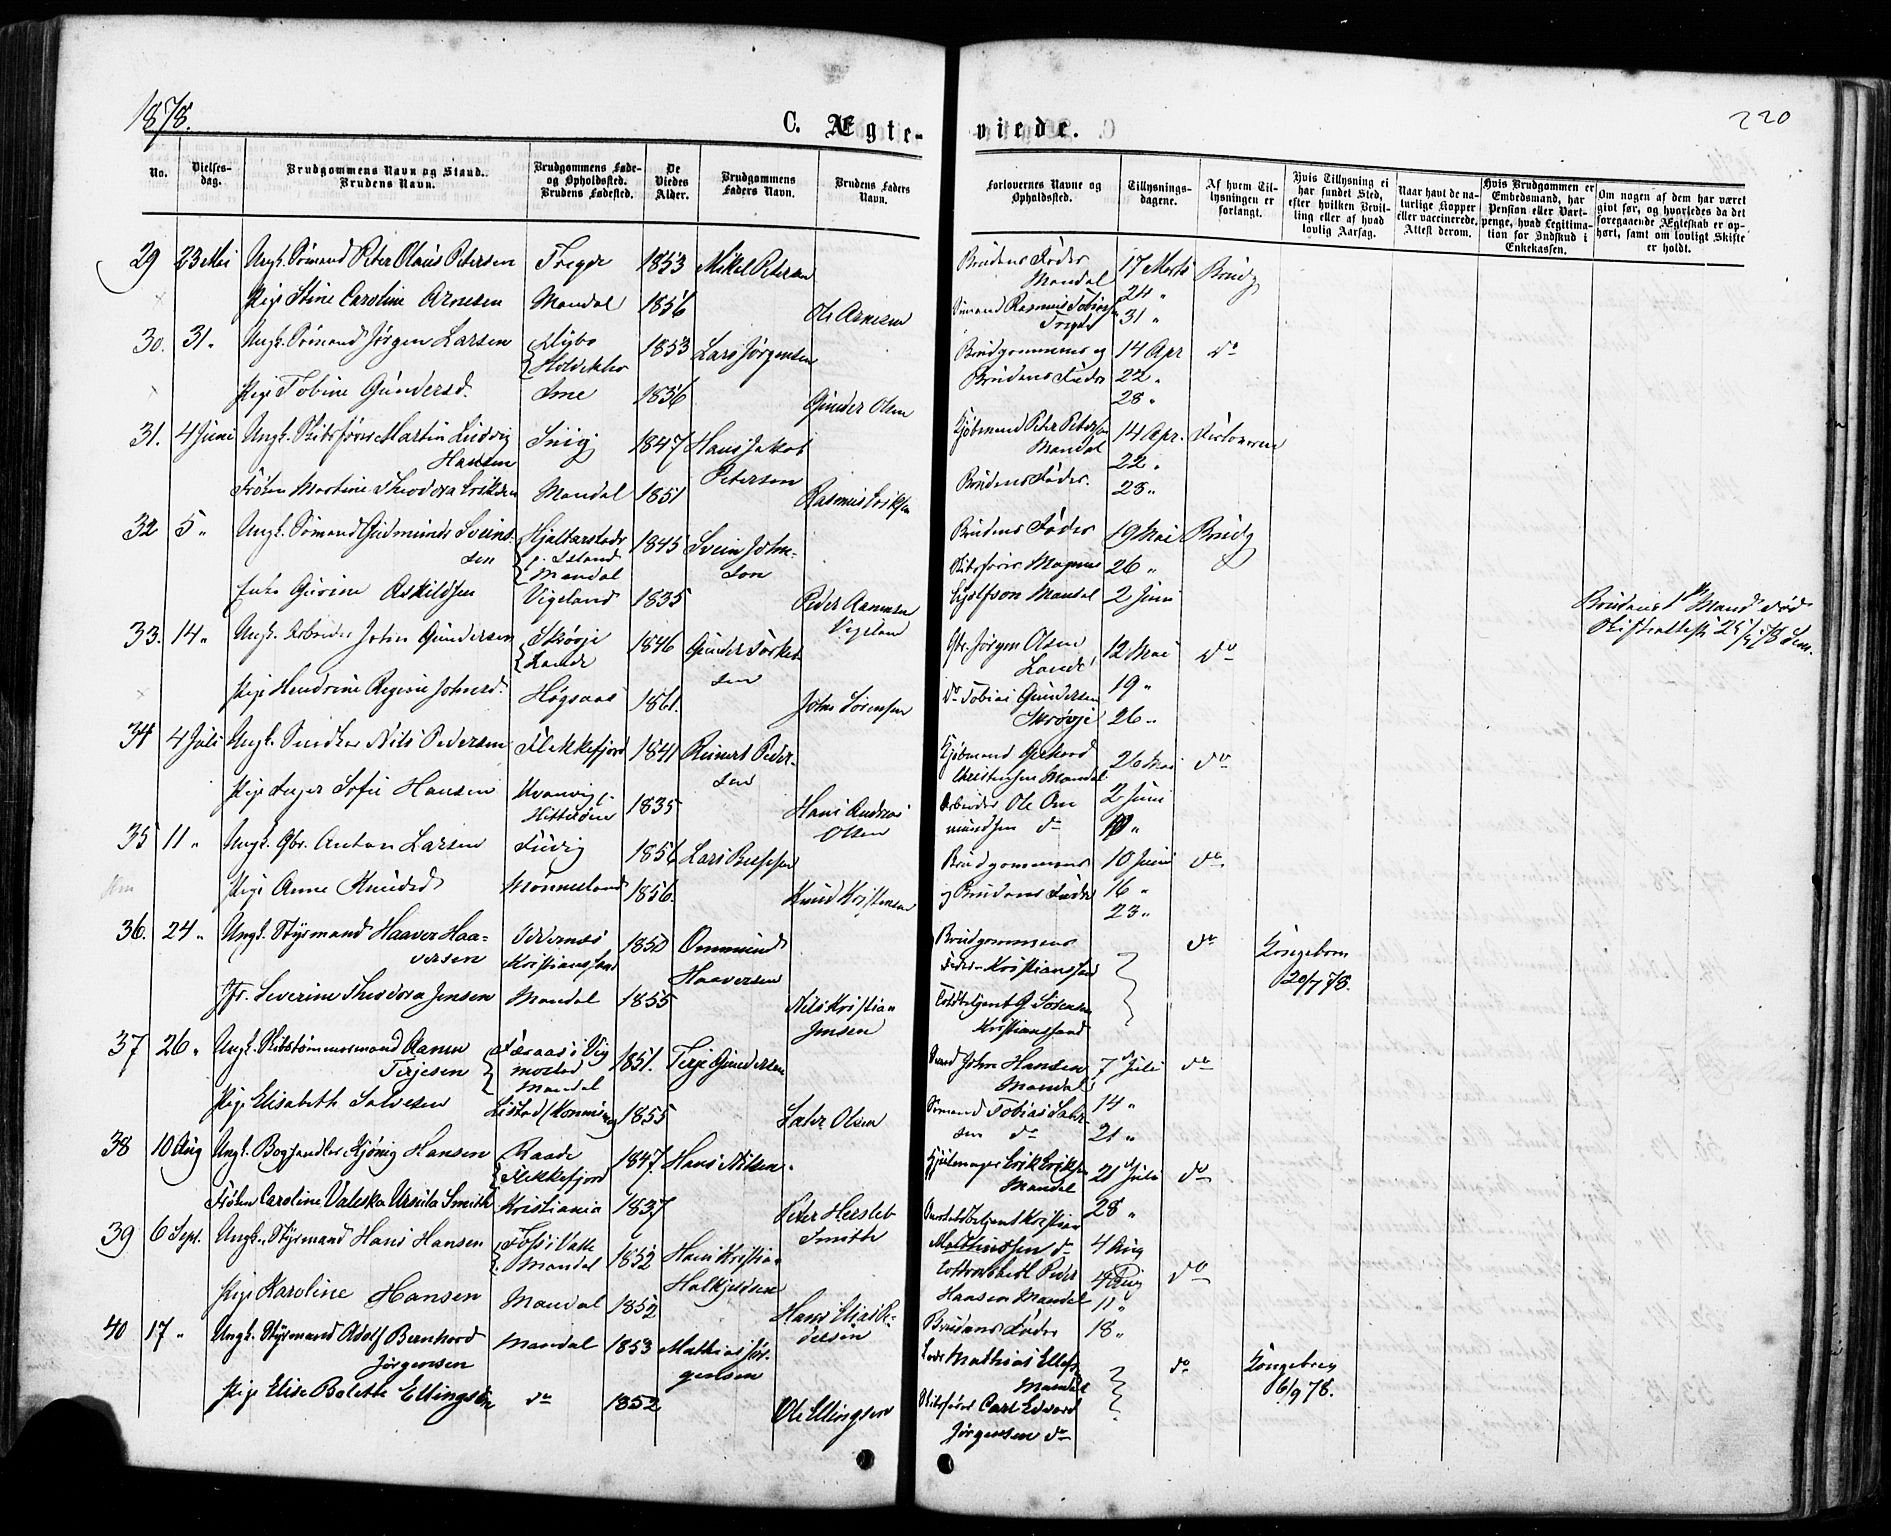 1878.
220
C. Ægteviede.
No.
Vielsesdag.
Brudgommens Navn og Stand.
Brudens Navn.
BrudgommensFøde-
og Opholdssted.
Brudens Fødested.
De
Viedes
Alder.
Brudgommens
Faders Navn.
Brudens Faders
Navn.
Forlovernes Navne og
Opholdssted.
Tillysnings-
dagene.
Af hvem Til-
lysningen er
forlangt.
Hvis Tillysning ei
har fundet Sted,
efter hvilken Bevil-
ling eller af hvad
lovlig Aarsag.
Naar havt de na-
turlige Kopper
eller vaccinerede,
Attest derom.
Hvis Brudgommen er
Embedsmand, har
Pension eller Vart-
penge, hvad Legitima-
tion for Indskud i
Enkekassen.
Om nogen af dem har været
givt før, og hvorledes da det
foregaaende Ægteskab er op-
hørt, samt om lovligt Skifte
er holdt.
29 23 Mai Ungk. Sømand Peter Olaus Petersen Tregde 1853 Mikel Petersen Brudens Fader Mandal 17 Marts Brudg
24 "
Pige Stine Caroline Arnesen Mandal 1856 Ole Arnesen Sømand Rasmus Tobiasen Tregde 31 "
30. 31. " Ungk. Sømand Jørgen Larsen Holvikka 1853 Lars Jørgensen Brudgommens og 14 Apr do
Pige Tobine Gundersd. Ime 1836 Gunder Olsen Brudens Fader 22 "
28 "
31. 4 Juni Ungk. Skibsfører Martin Ludvig Hansen 1847 Hans Jakob Petersen Kjøbmand Peter Petersen Mandal 14 Apr. Forloveren
22 "
Frøken Martine Theodora Eriksen Mandal 1851 Rasmus Eriksen Brudens Fader. 28 "
32 5 " Ungk. Sømand Gudmund Sveinsen Hjaltarstad p. Island Mandal 1845 Svein Johnson Brudens Fader 19 Mai Brudg
Skibsfører Magnus 26 "
Enke Gurine Askildsen Vigeland 1835 Peder Aanensen Vigeland Mandal 2 Juni Brudens 1ste Mand død
Skifteattest
33. 14 " Ungk. Arbeider John Gundersen Skrøvje Lande 1846 Gunder Torkelsen Gbr. Jørgen Olsen Lande 12 Mai do
Pige Hendrine Regine Johnsd. Høgsaas 1861. John Sørensen do Tobias Gundersen Skrøvje 19 "
26 "
34 4 Juli Ungk. Snedker Nils Pedersen Flekkefjord 1841 Reinert Pedersen Kjøbmand Christensen Mandal 26 Mai do
Pige Inger Sofie Hansen Hitterøen 1835 Hans Andreas Olsen Arbeider Ole Omundsen do 2 Juni
35 11 " Ungk. Gbr. Anton Larsen Fuvig 1856 Lars Brudgommens 10 Juni do
Pige Anne Knudsd Monnesland 1856. Knud Kristensen og Brudens Fader 16 "
23 "
36. 24 " Ungk. Styrmand Haaver Haaversen Kristianssand 1850 Ommund Haaversen Brudgommens Fader Kristianssand do Kongebrev 20/7 78.
Jfr. Severine Theodora Jensen Mandal 1855 Nils Kristian Jensen Toldbetjent G Sørensen Kristianssand
37 26 " Ungk. Skibstømmermand Aanen Terjesen Faraas i Vigmostad Mandal 1851. Terje Gundersen John Hansen Mandal 7 Juli do
Pige Elisabeth Salvesen 1855 Sømand Tobias do 14 "
21 "
38 10 Aug Ungk. Boghandler Kjønig Hansen Raade Flekkefjord 1847. Hans Nilsen. Hjulmager Erik Eriksen Mandal 21 Juli do
Frøken Caroline Valeska Ursula Smith Kristiania 1837 Peter Hersleb Smith 28 "
4 Aug
39 6 Sept. Ungk. Styrmand Hans Hansen Foss i Valle Mandal 1852 Hans Kristian Peder Hansen Mandal 4 Aug do
Pige Karoline Hansen Mandal 1852 Hans Elias Brudens Fader 11 "
18 "
40 17 " Ungk. Styrmand Adolf Bernhard Jørgensen Mandal 1853 Mathias Jørgensen Mathias Mandal do Kongebrev 6/9 78.
Pige Elise Bolette Ellingsen do 1852 Ole Ellingsen Skibsfører Carl Edvard Jørgensen do